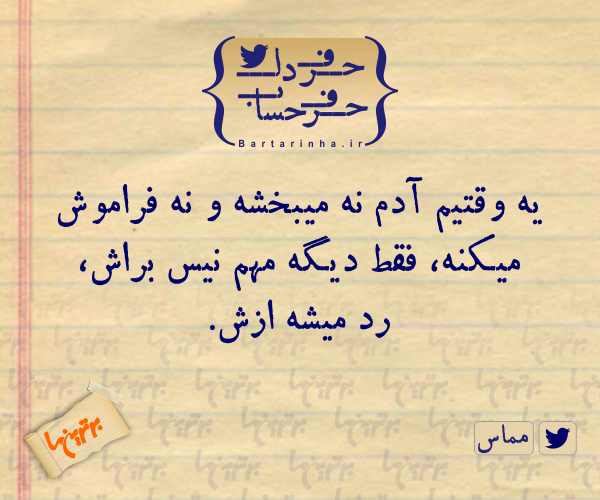 حرف دل
حرف حساب
Bartarinha.ir
یه وقتیم آدم نه میبخشه و نه فراموش
میکنه، فقط دیگه مهم نیس براش،
رد میشه ازش.
برترین‌ها
مماس